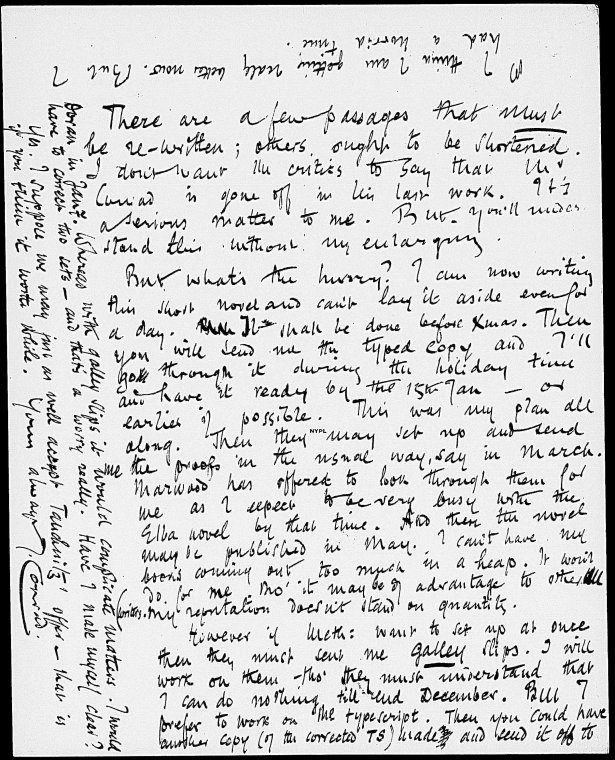 There are a few passages that must
be re-written; others ought to be shortened.
I don't want the critics to say that Mr
Conrad is gone off in his last work. It is
a serious matter to me. But you'll under-
stand this without my enlarging.
But what's the hurry? I am now writing
this short novel and can't lay it aside even for
a day. It shall be done before Xmas. Then
you will send me the typed copy and I'll
go through it during the holiday time
and have it ready by the 15th Jan – or
earlier if possible. This was my plan all
along. Then they may set up and send
me the proofs in the usual way, say in March.
Marwood has offered to look through them for
me as I expect to be very busy with the
Elba novel by that time. And then the novel
may be published in May. I can't have my
books coming out too much in a heap. It won't
do for me tho' it may be of advantage to other
writers. My reputation doesn't stand on quantity.
However if Meth: want to set up at once
then they must sent me galley slips. I will
work on them – tho' they must understand that
I can do nothing till end December. But I
prefer to work on the typescript. Then you could have
another copy (of the corrected TS) made and send it off to
Doran in Jany. Whereas with galley slips it would complicate matters. I would
have to correct two sets – and that's a worry really. Have I made myself clear?
Yes. I suppose we may just as well accept Tauchnitz' offer – that is
if you think it worth while. Yours always J Conrad.
I think I am getting really better now. But I
had a horrid time.
NYPL